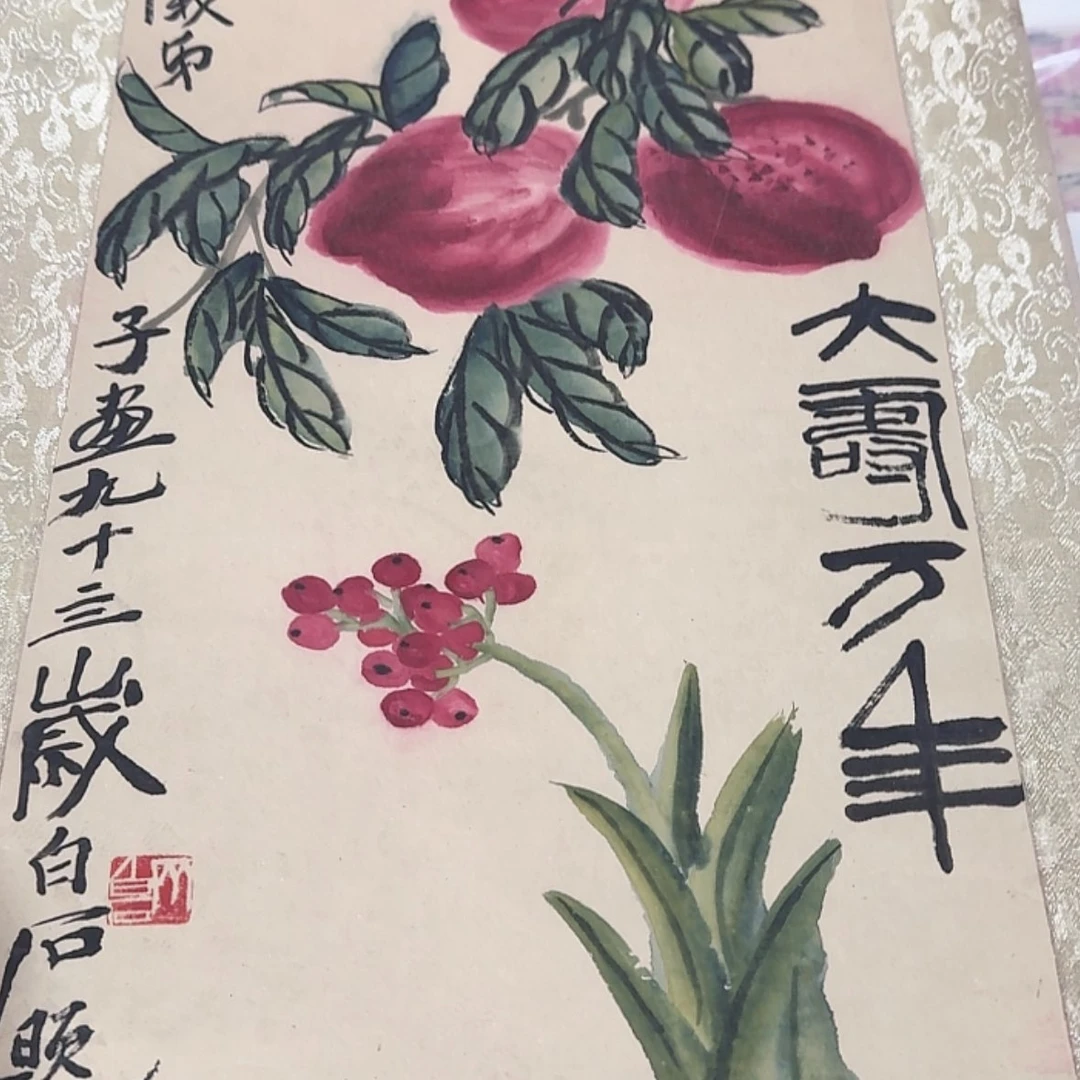 大壽万年
弟
子画九十三歲白石